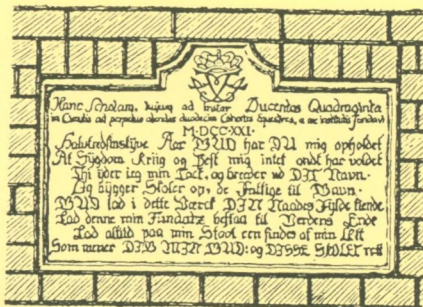 Hanc Scholam, hujus ad instar Ducentas Quadraginta
in Circulis ad perpetuo alendas duodecim Cohortes Equestres, a me institutis fundavi
M·DCC·XXI·
Halvtredsinstyve Aar GUD har DU mig opholdet
At Sygdom Kriig og Pest mig intet ondt har voldet
Thi yder jeg min Tack, og breder ud DIT Navn
Og bygger Skoler op, de Fattige til Gavn
GUD lad i dette Værck DIN Naades Fylde kiende
Lad denne min Fundatz bestaa til Verdens Ende
Lad altid paa min Stool een findes af min Ætt
Som mener DIG MIN GUD: og DISSE SKOLER rett